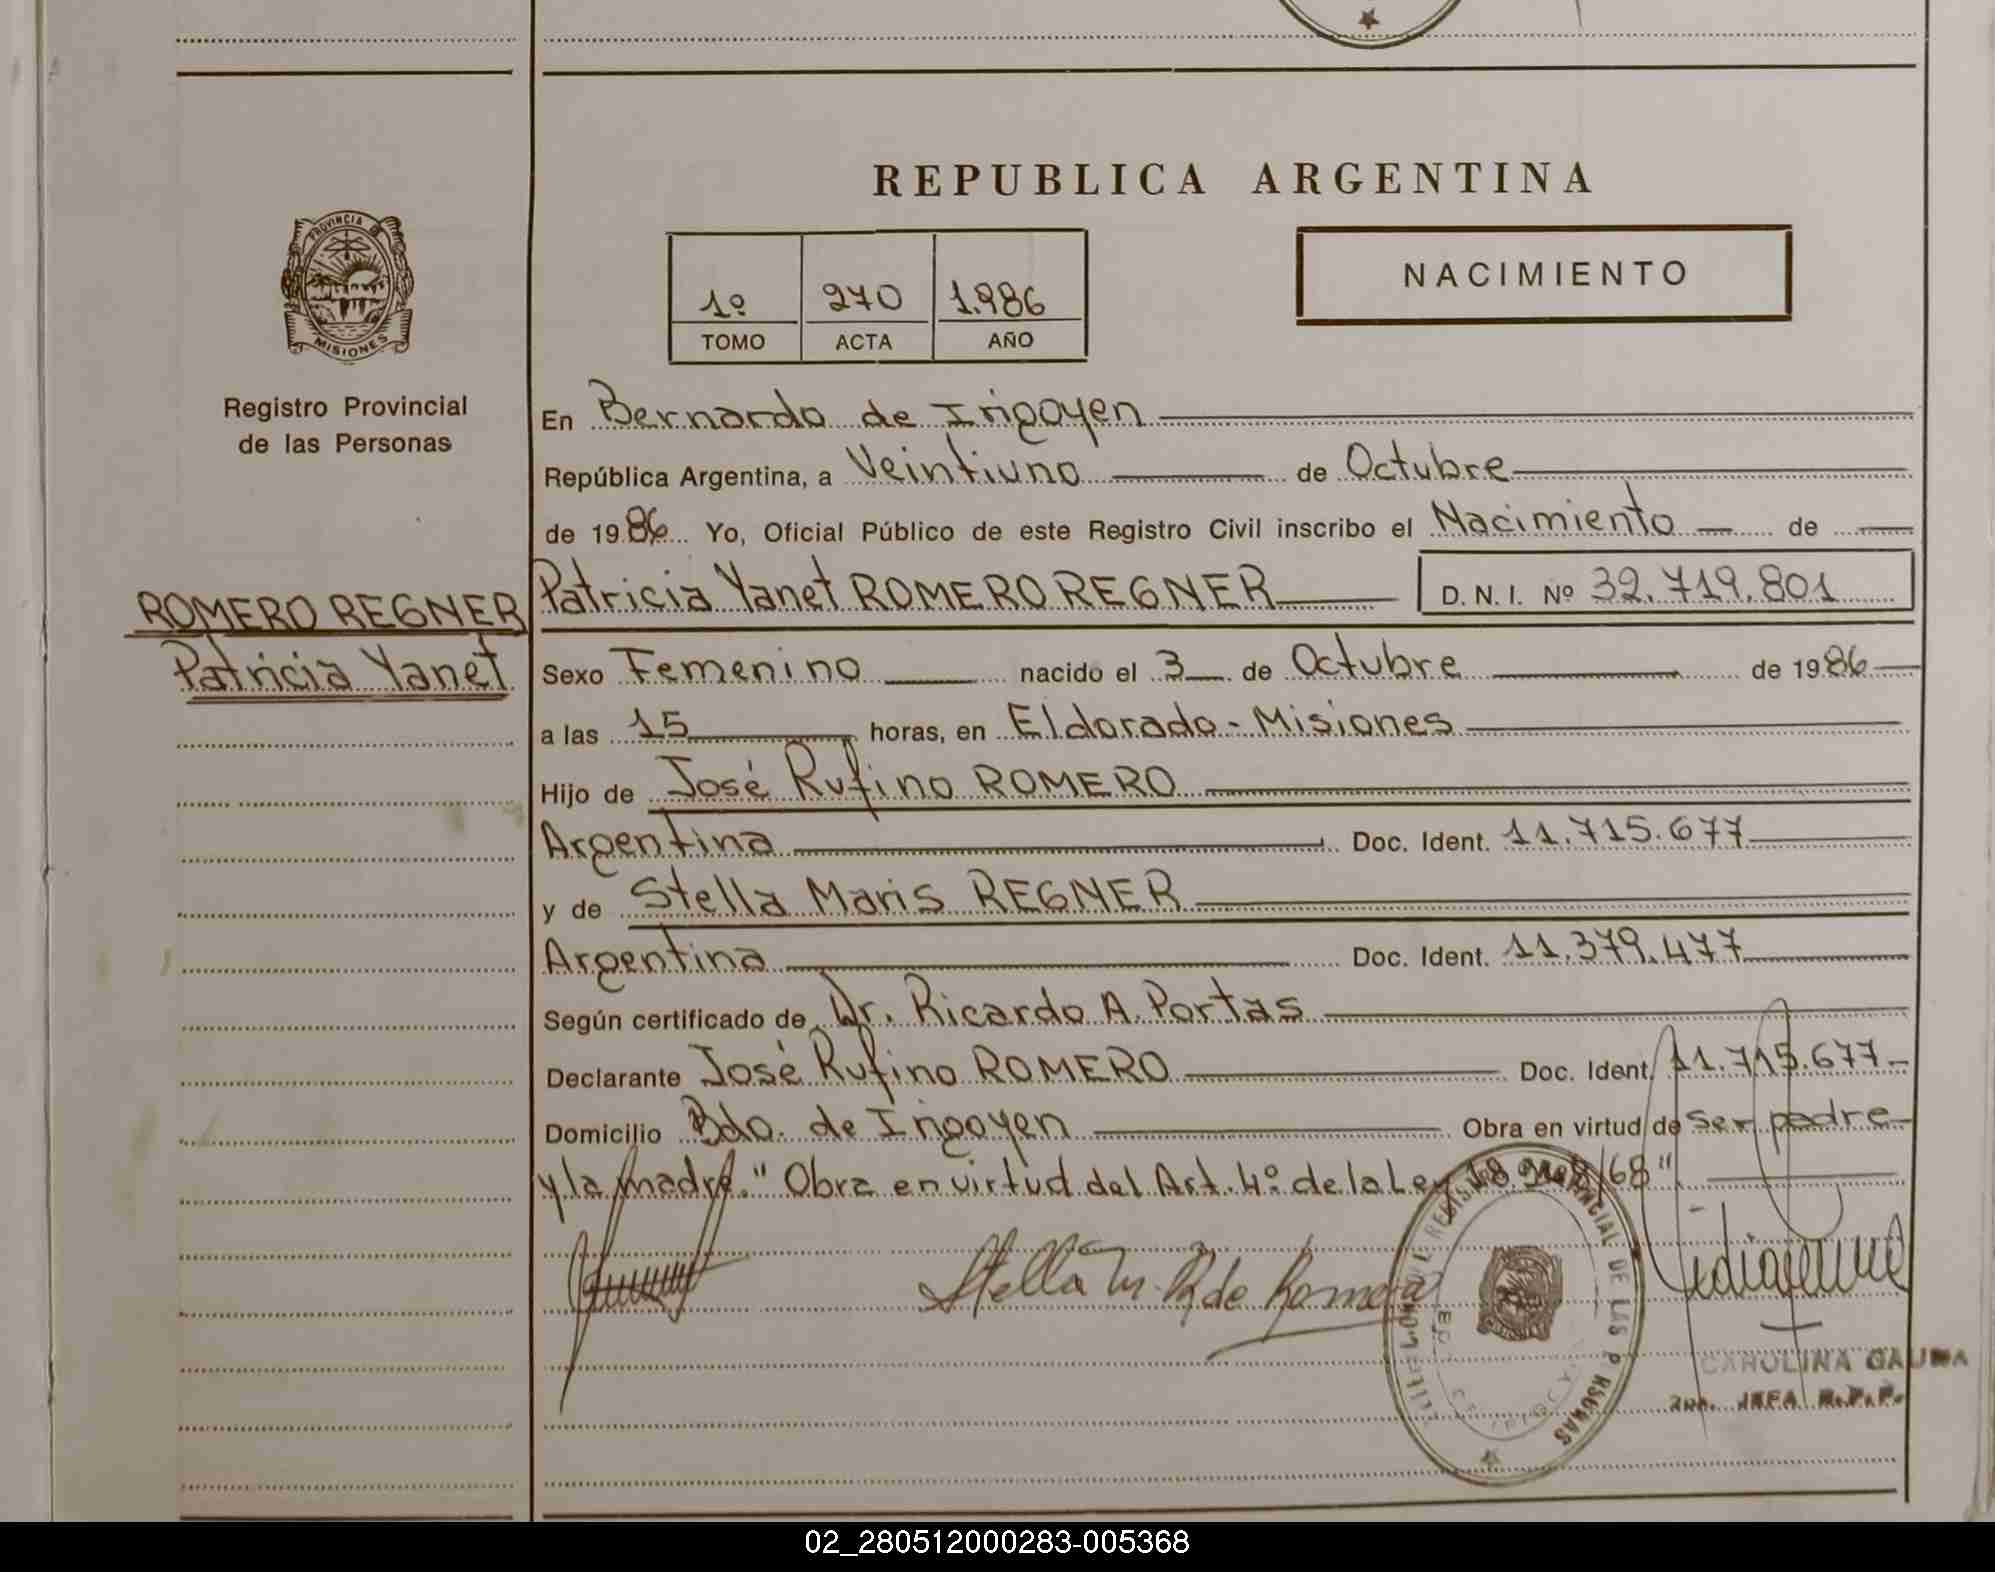 REPUBLICA ARGENTINA
PROVINCIA DE
MISIONES
Registro Provincial
de las Personas
1º 270 1.986
TOMO ACTA AÑO
NACIMIENTO
En Bernardo de Irigoyen
República Argentina, a Veintiuno de Octubre
de 1986 Yo, Oficial Público de este Registro Civil inscribo el Nacimiento de
ROMERO REGNER
Patricia Yanet
Patricia Yanet ROMERO REGNER D. N. I. Nº 32.719.801
Sexo Femenino nacido el 3 de Octubre de 1986
a las 15 horas, en Eldorado - Misiones
Hijo de José Rufino ROMERO
Argentina Doc. Ident. 11.715.677
y de Stella Maris REGNER
Argentina Doc. Ident. 11.379.477
Según certificado de Dr. Ricardo A. Portas
Declarante José Rufino ROMERO Doc. Ident. 11.715.677
Domicilio Bdo. de Irigoyen Obra en virtud de ser padre
y la madre. "Obra en virtud del Art. 4º de la Ley 18. /68"
Stella M. R de Romero
REGISTRO PROVINCIAL DE LAS PERSONAS
CAROLINA GAUNA
JEFA R.P.P.
02_280512000283-005368